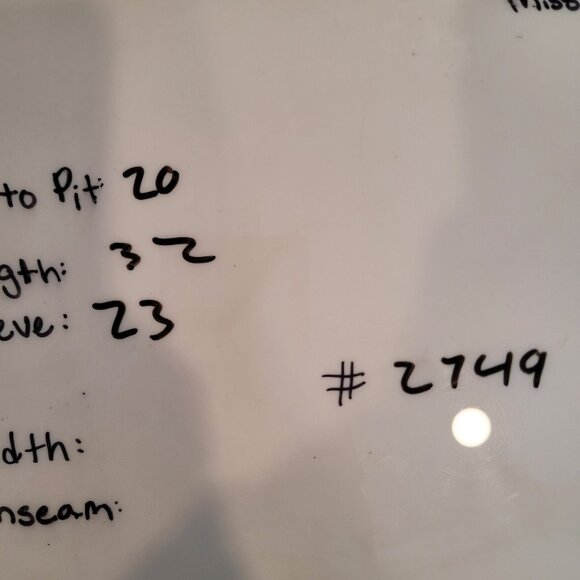 to Pit: 20
gth: 32
eve: 23
# 2749
dth:
nseam: